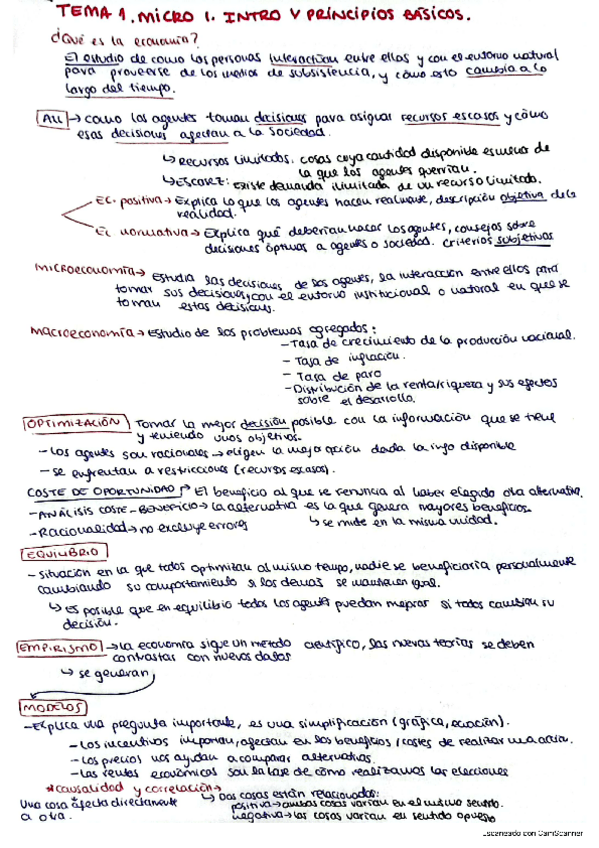 TEMA 1. MICRO 1. INTRO Y PRINCIPIOS BÁSICOS.
¿Qué es la economía?
El estudio de como las personas interactúan entre ellas y con el entorno natural
para proveerse de los medios de subsistencia, y cómo esto cambia a lo
largo del tiempo.
→ como los agentes toman decisiones para asignar recursos escasos y cómo
esas decisiones afectan a la sociedad.
↳ Recursos limitados, cosas cuya cantidad disponible es menor de
la que los agentes querrían.
↳ Escasez: existe demanda ilimitada de un recurso limitado.
Ec. positiva → Explica lo que los agentes hacen realmente, descripción objetiva de la
realidad.
Ec normativa → Explica qué deberían hacer los agentes, consejos sobre
decisiones óptimas a agentes o sociedad. criterios subjetivos
Microeconomía → Estudia las decisiones de los agentes, la interacción entre ellos para
tomar sus decisiones y con el entorno institucional o natural en que se
toman estas decisiones.
Macroeconomía → Estudio de los problemas agregados:
- Tasa de crecimiento de la producción nacional.
- Tasa de inflación.
- Tasa de paro
- Distribución de la renta/riqueza y sus efectos
sobre el desarrollo.
OPTIMIZACIÓN Tomar la mejor decisión posible con la información que se tiene
y teniendo unos objetivos.
- Los agentes son racionales → eligen la mejor opción dada la info disponible
- se enfrentan a restricciones (recursos escasos).
COSTE DE OPORTUNIDAD → El beneficio al que se renuncia al haber elegido otra alternativa.
- ANÁLISIS COSTE-BENEFICIO → la alternativa es la que genera mayores beneficios.
- Racionalidad → no excluye errores ↳ se mide en la misma unidad.
EQUILIBRIO
- Situación en la que todos optimizan al mismo tiempo, nadie se beneficiaría personalmente
cambiando su comportamiento si los demás se mantienen igual.
↳ Es posible que en equilibrio todos los agentes puedan mejorar si todos cambian su
decisión.
EMPIRISMO → la economía sigue un método científico, las nuevas teorías se deben
contrastar con nuevos datos
↳ se generan
MODELOS
- Explica una pregunta importante, es una simplificación (gráfica, ecuación).
- Los incentivos importan, afectan en los beneficios / costes de realizar una acción.
- Los precios nos ayudan a comparar alternativas.
- Las rentas económicas son la base de cómo realizamos las elecciones
*causalidad y correlación → ↳ Dos cosas están relacionadas:
Una cosa afecta directamente positiva → ambas cosas varían en el mismo sentido.
a otra. negativa → las cosas varían en sentido opuesto
Escaneado con CamScanner